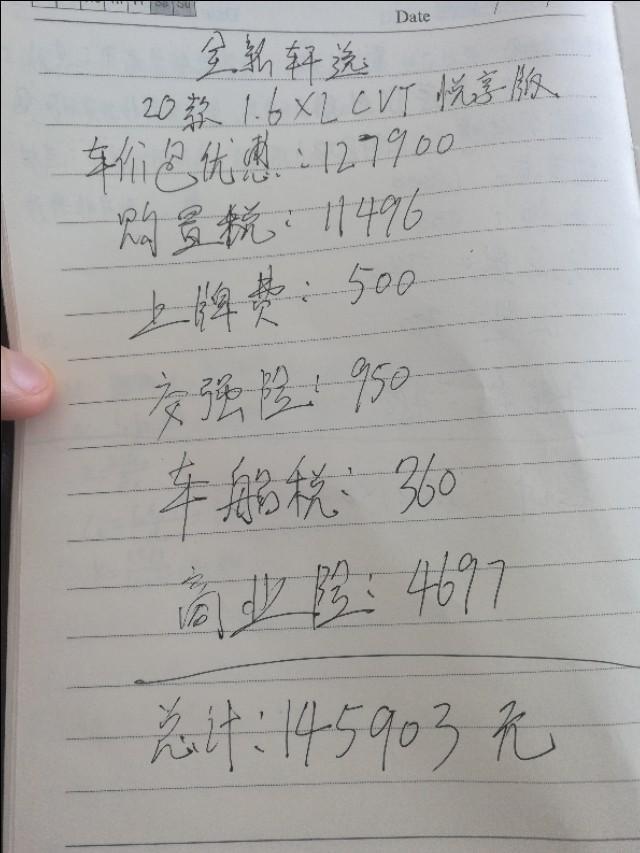 Date
全新轩逸
20款 1.6 XL CVT 悦享版
车价包优惠:127900
购置税:11496
上牌费:500
交强险:950
车船税:360
商业险:4697
总计:145903 元